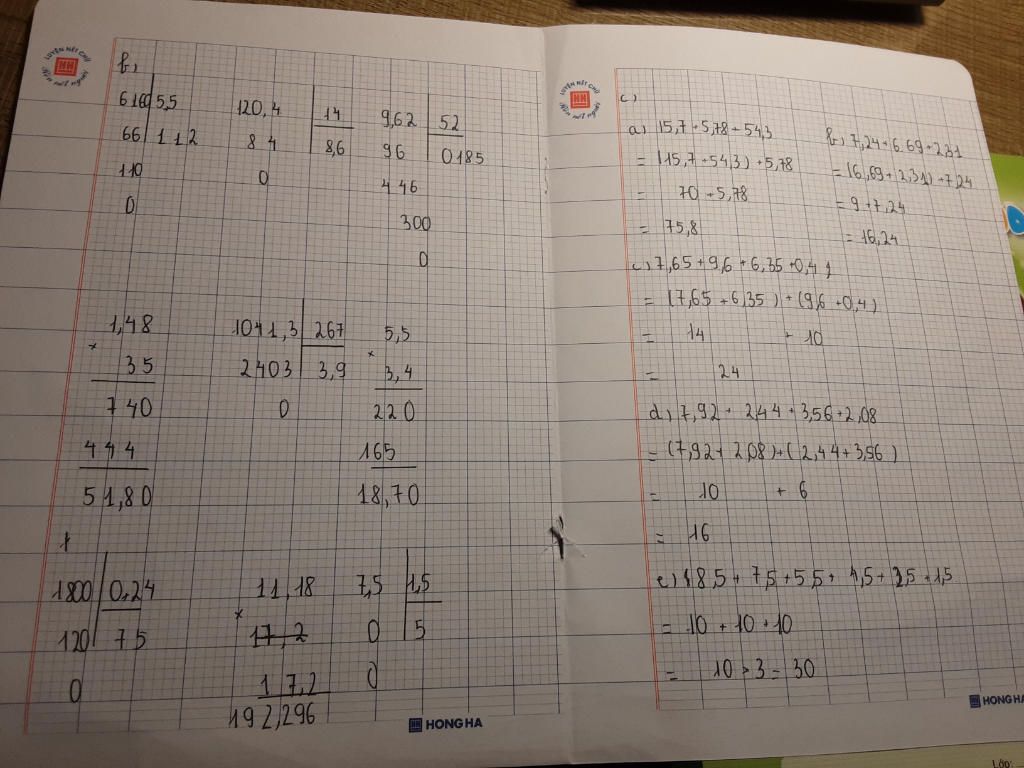 LUYỆN NÉT CHỮ
HH
RÈN NẾT NGƯỜI
b,
6160 5,5
66 112
110
0
120,4 14
84 8,6
0
9,62 52
96 0185
446
300
0
1,48
×
35
740
444
51,80
1041,3 267
2403 3,9
0
5,5
×
3,4
220
165
18,70
1800 0,24
120 75
0
11,18
×
17,2
17,2
192,296
7,5 1,5
0 5
0
HH HONG HA
LUYỆN NÉT CHỮ
HH
RÈN NẾT NGƯỜI
c,
a) 15,7+5,78+54,3
= (15,7+54,3)+5,78
= 70+5,78
= 75,8
b) 7,24+6.69+2,31
= (6,69+2,31)+7,24
= 9+7,24
= 16,24
c) 7,65+9,6+6,35+0,4
= (7,65+6,35)+(9,6+0,4)
= 14 + 10
= 24
d) 7,92+ 2,44+3,56+2,08
= (7,92+2,08)+(2,44+3,56)
= 10 + 6
= 16
e) 8,5+ 7,5+5,5+ 4,5+ 2,5+1,5
= 10 + 10 + 10
= 10 × 3 = 30
HH HONG HA
Lớp: